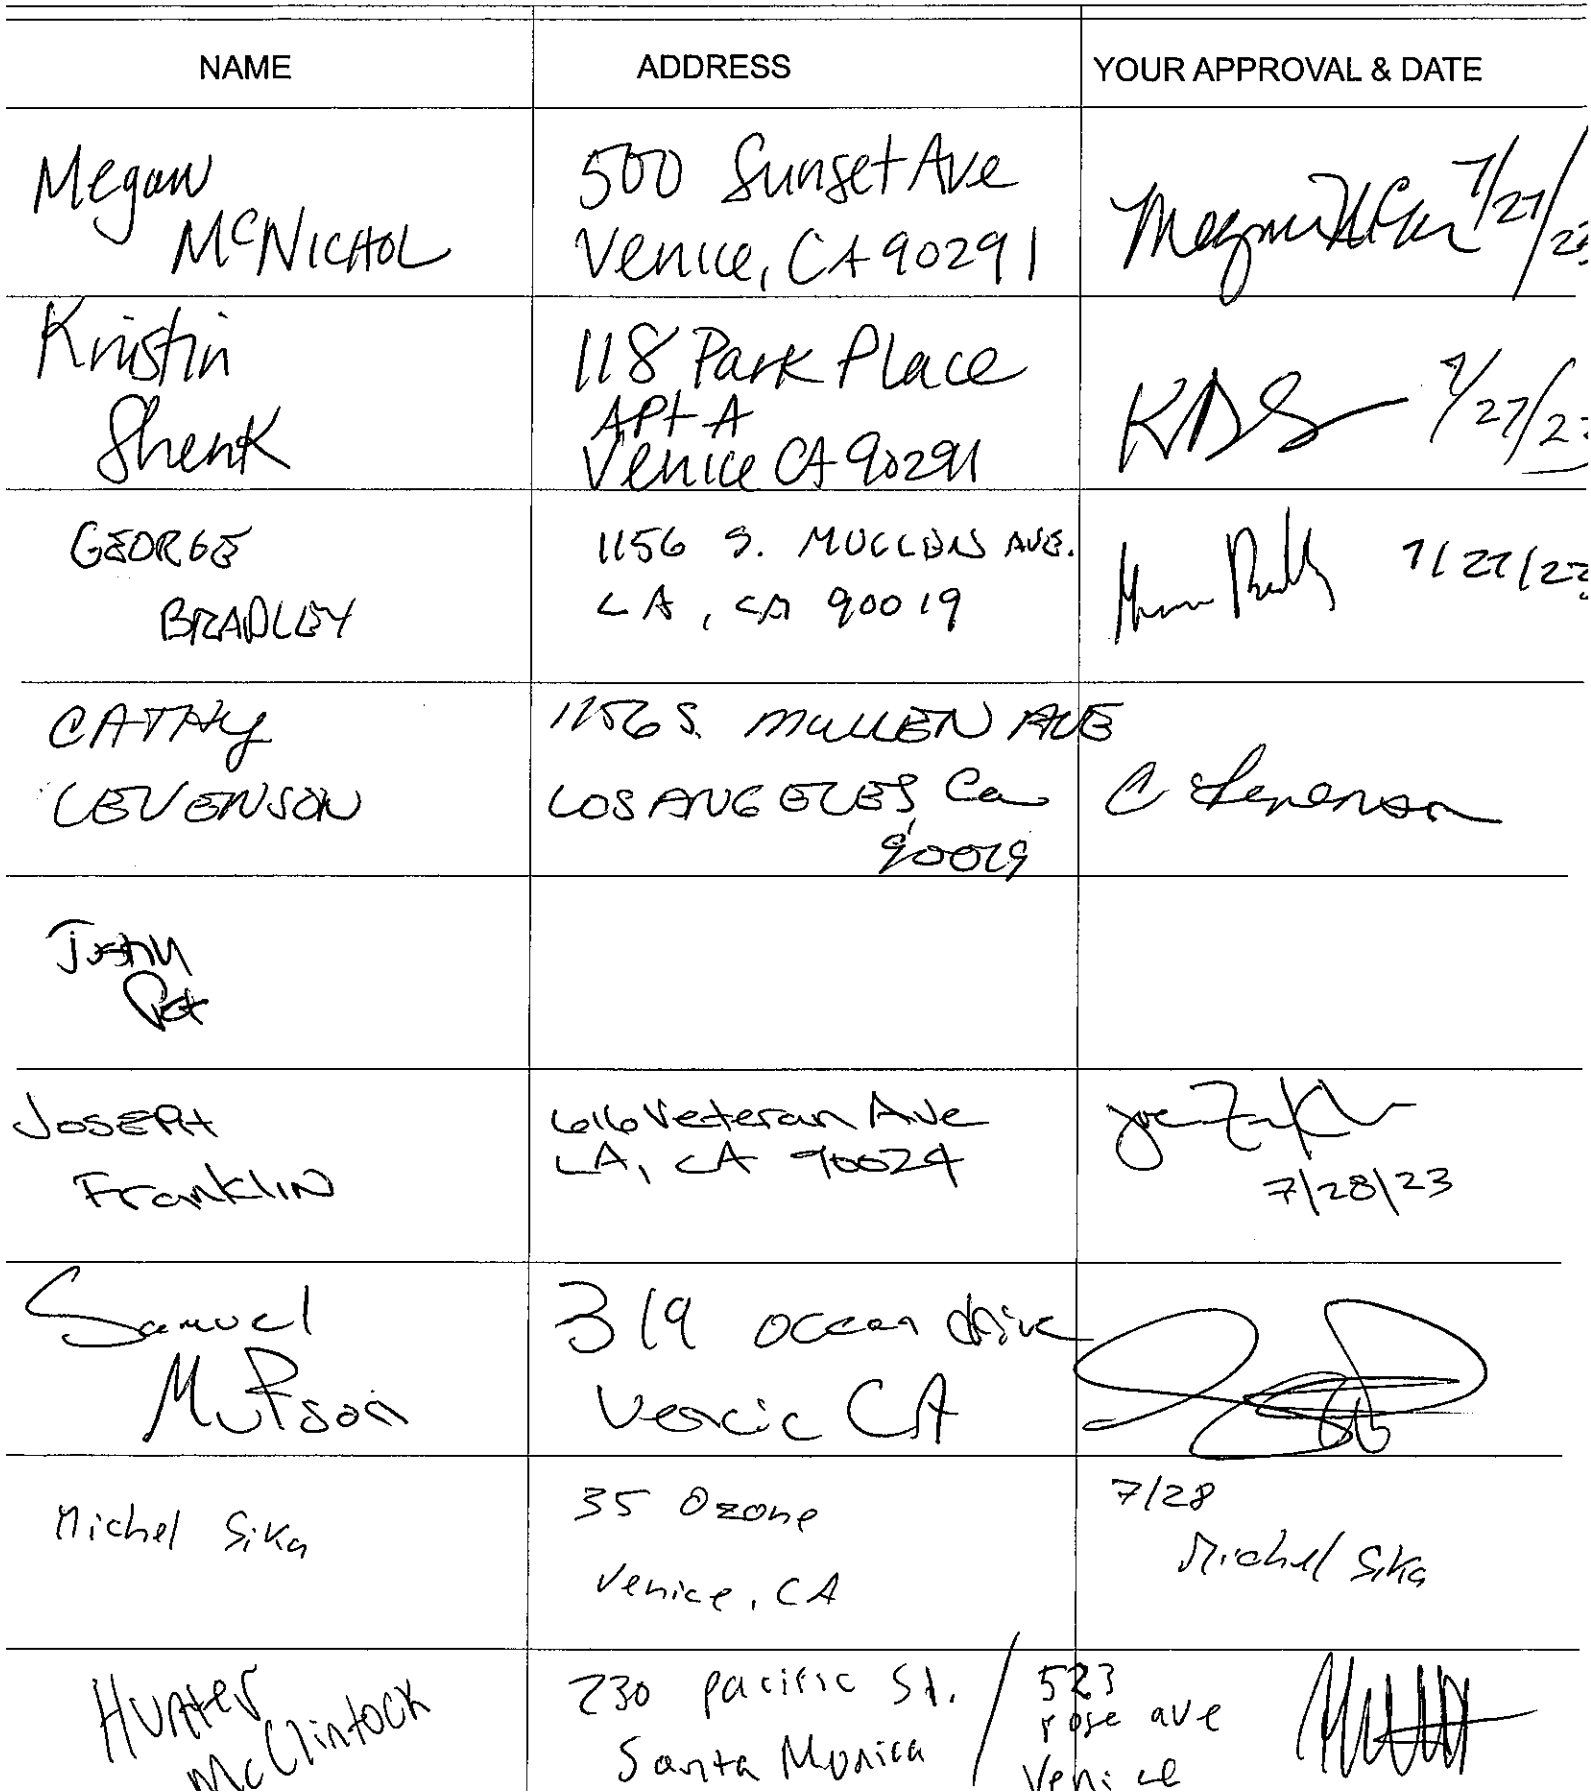 NAME ADDRESS YOUR APPROVAL & DATE
Megan
McNICHOL
500 Sunset Ave
Venice, CA 90291
7/27/23
Kristin
Shenk
118 Park Place
APt A
Venice CA 90291
KDS 7/27/23
GEORGE
BRADLEY
1156 S. MULLEN AVE.
LA, CA 90019
7/27/23
CATHY
LEVENSON
1156 S. MULLEN AVE
LOS ANGELES, Ca
90019
C Levenson
Justin
JOSEPH
Franklin
616 Veteran Ave
LA, CA 90024
7/28/23
Samuel
319 ocean drive
CA
Michel Sika
35 Ozone
Venice, CA
7/28
Michel Sika
Hunter
McClintock
230 pacific St. /
Santa Monica
523
rose ave
Venice